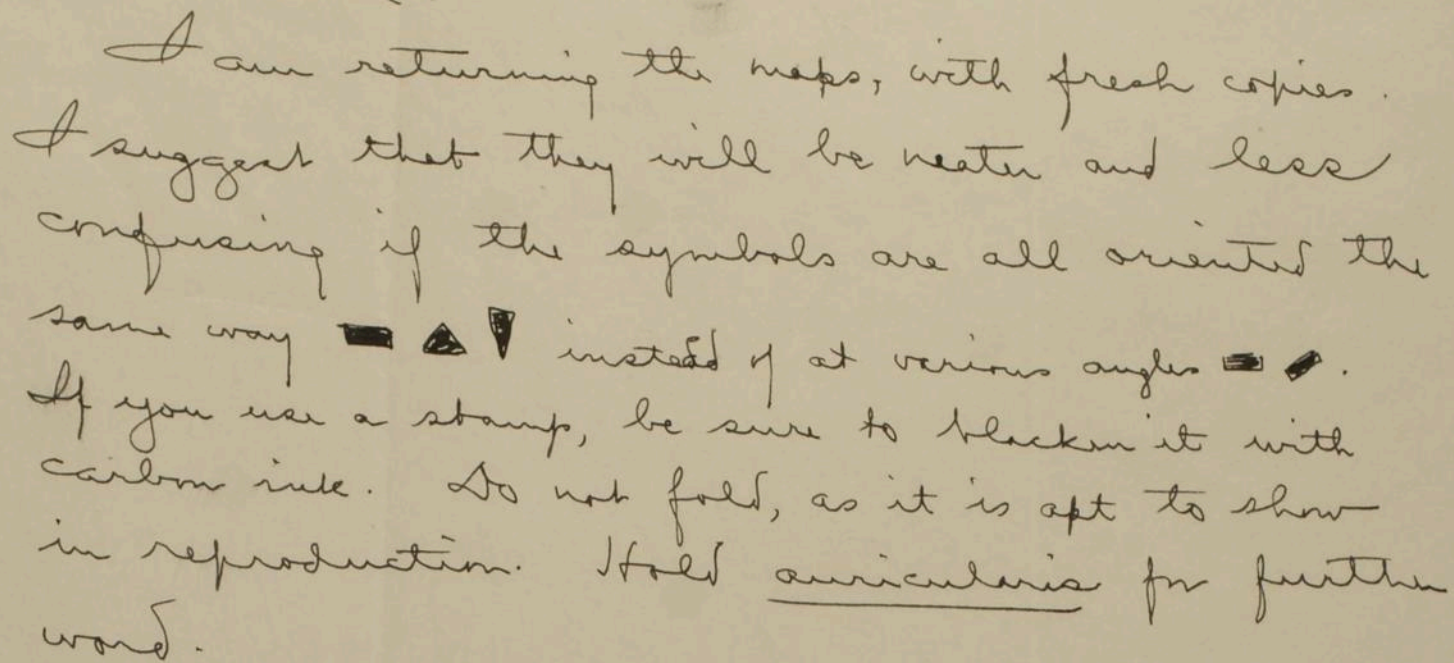 I am returning the maps, with fresh copies.
I suggest that they will be neater and less
confusing if the symbols are all oriented the
same way ▬ ▲ ▼ instead of at various angles ▬ ▰.
If you use a stamp, be sure to blacken it with
carbon ink. Do not fold, as it is apt to show
in reproduction. Hold auricularis for further
word.